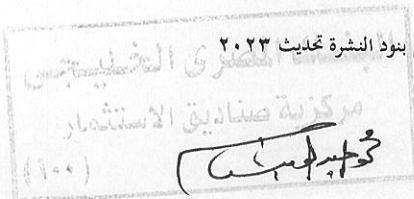 بنود النشرة تحديث ٢٠٢٣
البنك المصرى الخليجى
مركزية صناديق الاستثمار
(١٠٠)